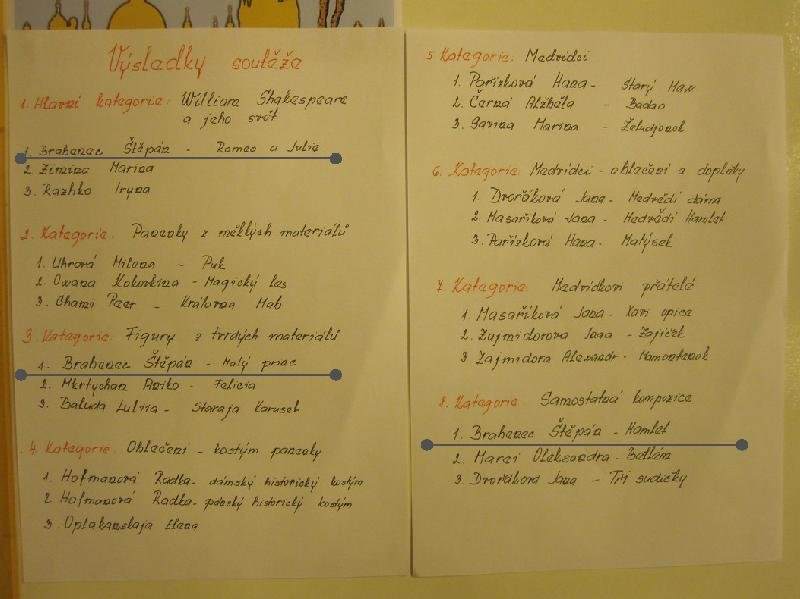 Výsledky soutěže
1. Hlavní kategorie: William Shakespeare
a jeho svět
1. Brahenec Štěpán - Romeo a Julie
2. Zimina Marina
3. Razhko Iryna
2. Kategorie: Panenky z měkkých materiálů
1. Uhrová Milena - Puk
2. Owana - Magický les
3. Ghami Peer - Královna Mab
3. Kategorie: Figury z tvrdých materiálů
1. Brahenec Štěpán - Malý princ
2. Mkrtychan - Felicia
3. Baluda - Staraja Karusel
4. Kategorie: Oblečení - kostým panenky
1. Hofmanová Radka - dámský historický kostým
2. Hofmanová Radka - pánský historický kostým
3. Oplakanskaja Elena
5 Kategorie: Medvídci
1. Pařízková Hana - Starý Max
2. Černá Alžběta - Badao
3. Marina -
6. Kategorie: Medvídci - oblečení a doplňky
1. Dvořáková Jana - Medvědí dáma
2. Masaříková Jana - Medvědí Hamlet
3. Pařízková Hana - Matýsek
7. Kategorie: Medvídkovi přátelé
1. Masaříková Jana - opice
2. Zajmidorova Jana - Zajíček
3. Zajmidora Alexandr - Mamontenok
8. Kategorie: Samostatná kompozice
1. Brahenec Štěpán - Hamlet
2. Marci Oleksandra - Betlém
3. Dvořáková Jana - Tři sudičky